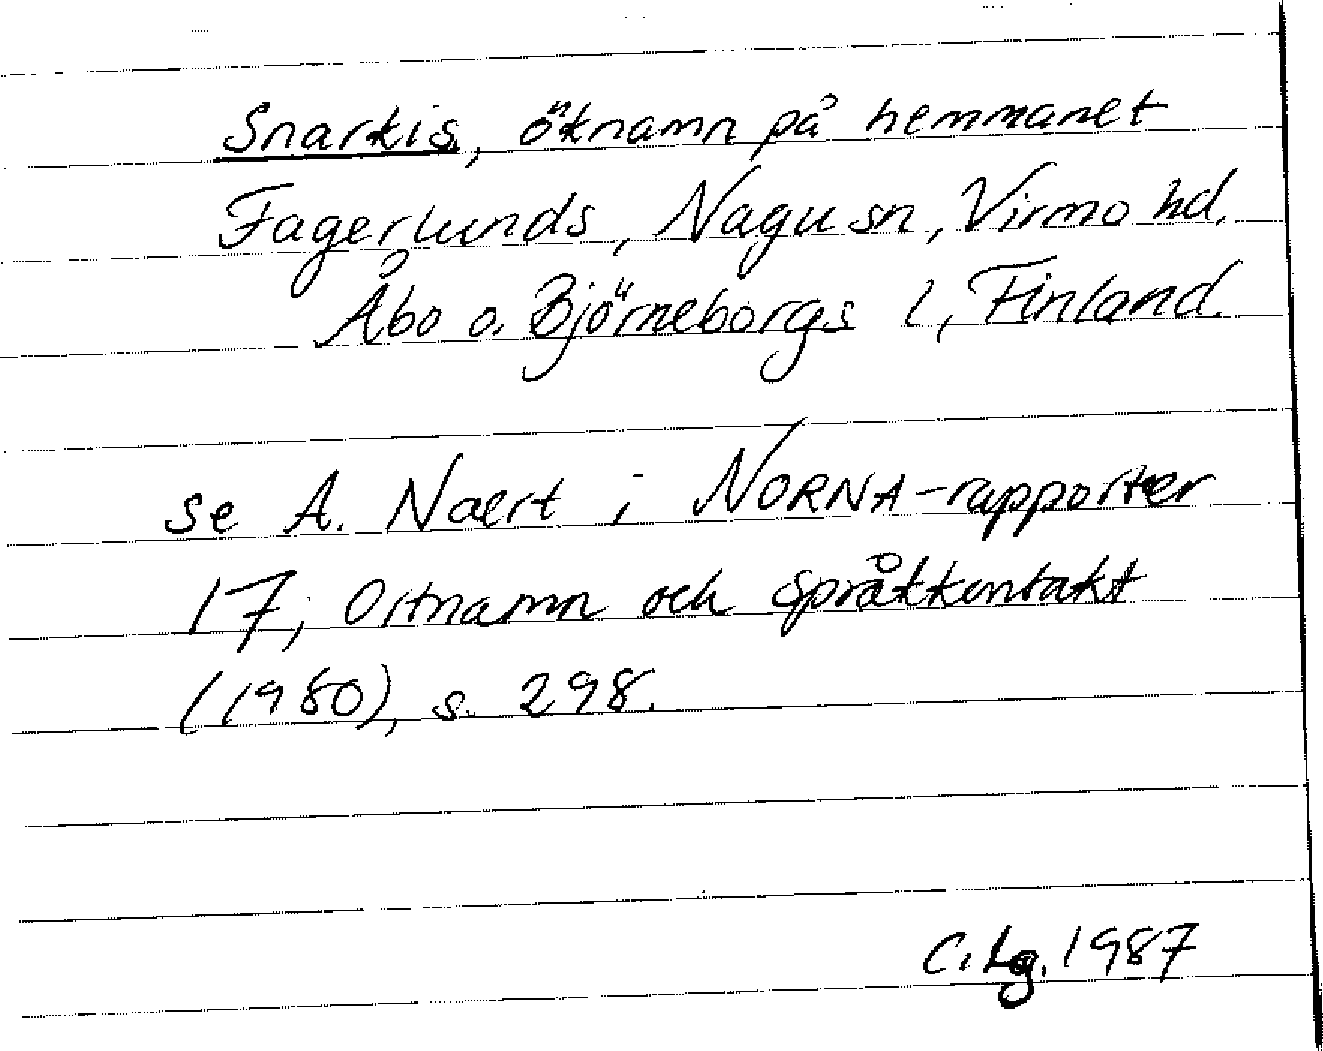 Snarkis, öknamn på hemmanet
Fagerlunds, Nagu sn, Virmo hd.
Åbo o. Björneborgs l, Finland.
se A. Naert i NORNA-rapporter
17, Ortnamn och språkkontakt
(1980), s. 298.
C. Lg. 1987